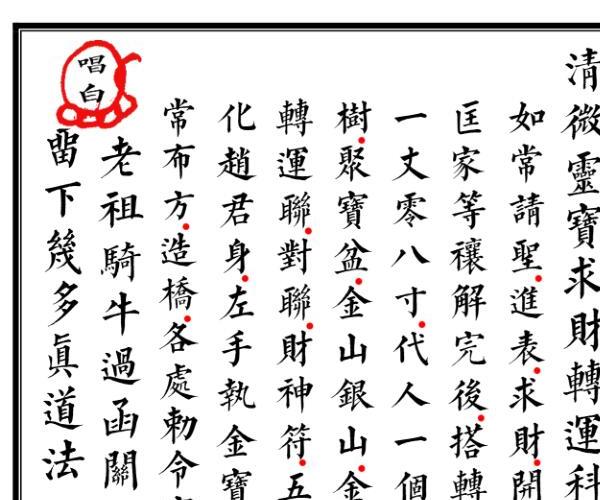 清微靈寶求財轉運科
如常請聖進表求財開
匡家等禳解完後搭轉
一丈零八寸代人一個
樹聚寶盆金山銀山金
轉運聯對聯財神符五
化趙君身左手執金寶
常布方造橋各處勅令
唱白
老祖騎牛過函關
畱下幾多眞道法